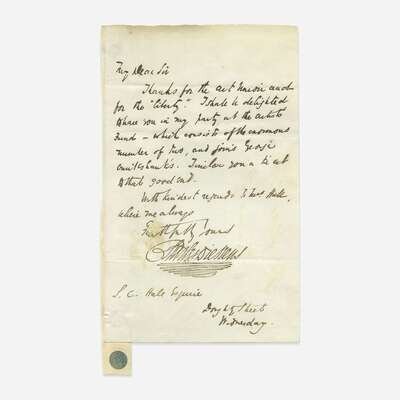 My Dear Sir
Thanks for the Art Union and
for the "liberty". I shall be delighted
to have you in my party at the Artists
Fund – which consists of the enormous
number of two, and joins George
Cruikshank's. I inclose you a ticket
to that good end.
With kindest regards to Mrs Hall,
believe me always
Faithfully Yours
Charles Dickens
S. C. Hall Esquire
Doughty Street
Wednesday.